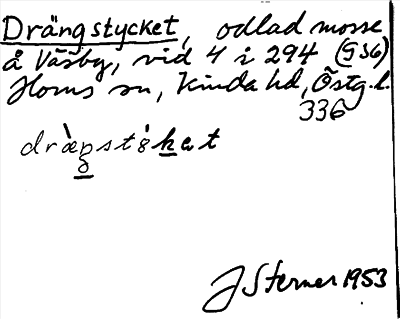 Drängstycket, odlad mosse
å Väsby, vid 4 i 294 (G 36)
Horns sn, Kinda hd, Östg. l.
336
J Sterner 1953